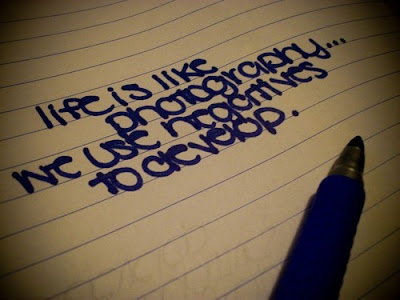 life is like
photography...
we use negatives
to develop.